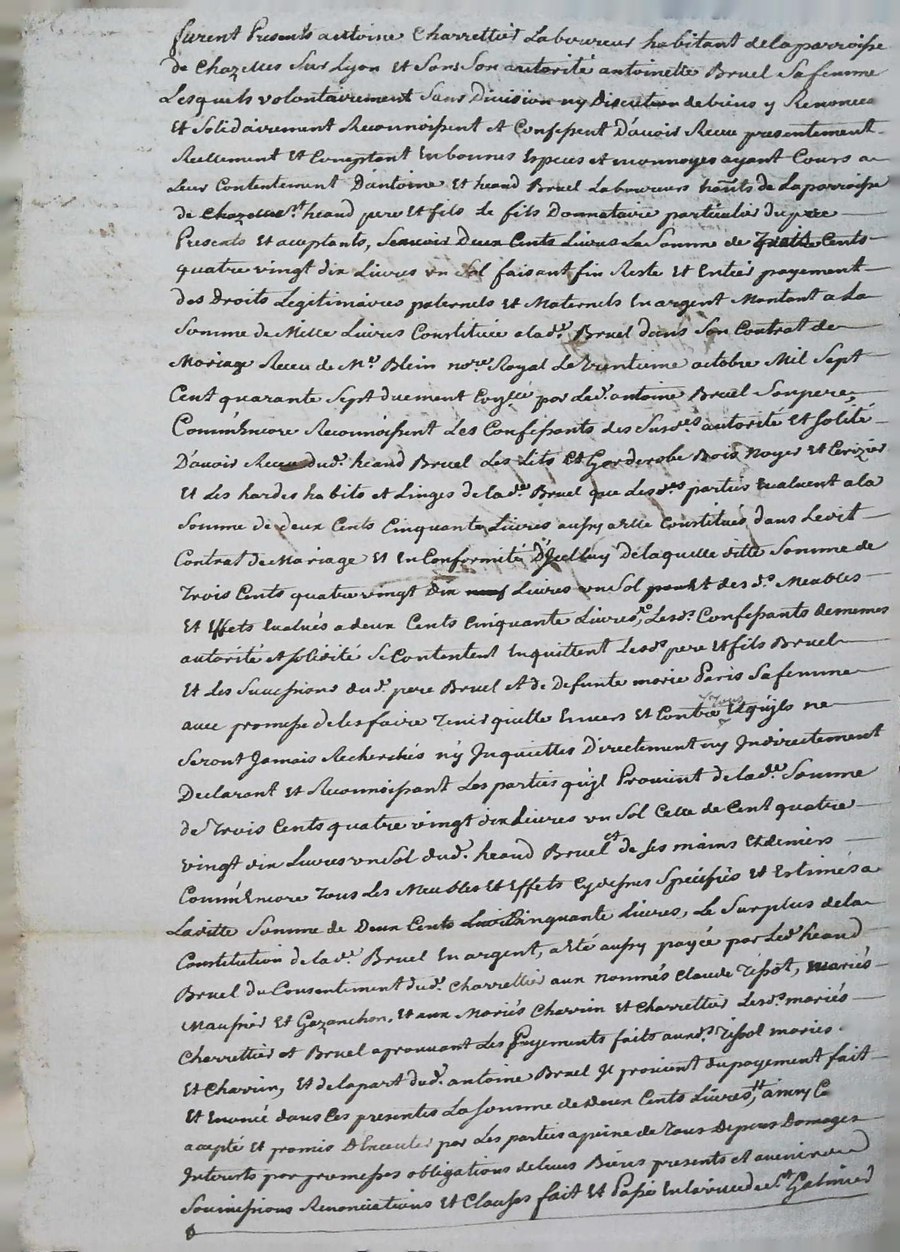 furent Presents antoine Charrettier Laboureur habitant de la parroisse
de Chazelles Sur Lyon et Sous Son autorité antoinette Bruel Sa femme
Lesquels volontairement Sans Division ny Discution de biens y Renoncee
Et Solidairement Reconnoissent et Confessent D'avoir Receu presentement
Reellement Et Comptant En bonnes Especes et monnoyes ayant Cours a
Leur Contentement D'antoine Et heand Bruel Laboureurs hants de La parroisse
de Chazelles heand pere Et fils Le fils Donnataire particulier du pere
Presents Et aceptants, Scavoir Deux Cents Livres La Somme de Cents
quatre vingt dix Livres un Sol faisant fin Reste Et Entier payement
des Droits Legitimaires paternels et Maternels En argent Montant a La
Somme de Mille Livres Constituée a lad.e Bruel dans Son Contrat de
Mariage Receu de M.e Blein no.re Royal Le trentieme octobre Mil Sept
Cent quarante Sept duement par Led. antoine Bruel Son pere,
Comm'Encore Reconnoissent Les Confessants des Susd.es autorité Et Solité
D'avoir Receu dud. heand Bruel Les Lits Et Gorderobe Bois Noyer Et Cerizier
Et Les hardes habits et Linges de lad.e Bruel que Lesd.es parties Evaluent a la
Somme de deux Cents Cinquante Livres aussy a Elle Constitués dans Ledit
Contrat de Mariage Et En Conformité D'Jcelluy De laquelle ditte Somme de
Trois Cents quatre vingt Dix Livres un Sol des d.s Meubles
Et Effets Evalués a deux Cents Cinquante Livres, Lesd. Confessants de memes
autorité et Solidité Se Contentent En quittent Lesd. pere Et fils Bruel
Et Les Successions dud. pere Bruel Et de Defunte marie Paris Sa femme
avec promesse de les faire Tenir quitte Envers Et Contre Tous Et qu'jls ne
Seront Jamais Recherchés n'y Jnquiettes Directement ny Jndirectement
Declarant Et Reconnoissant Les parties qu'jl Provient de lad.e Somme
de Trois Cents quatre vingt dix Livres un Sol Celle de Cent quatre
vingt dix Livres un Sol dud. heand Bruel et de Ses mains Et deniers
Comm'Encore Tous Les Meubles Et Effets Cydessus Specifiés Et Estimés a
Laditte Somme de Deux Cents Cinquante Livres, Le Surplus de la
Constitution de lad.e Bruel En argent, a Eté aussy payée par Led. heand
Bruel du Consentement dud. Charrettier aux nommés Claude Tissot, mariés
Maussier Et Gazanchon, Et aux Mariés Charrin Et Charrettier Lesd. mariés
Charrettier et Bruel aprouvant Les Payements faits auxd.s Tissot mariés
Et Charrin, Et de la part dud. antoine Bruel Jl provient du payement fait
Et Enoncé dans Ces presentes La Somme de Deux Cents Livres, ainsy Ca
acepté Et promis D'Executer par Les parties a peine de Tous Depens Domages
Interets par promesses obligations de Leurs Biens presents et avenir
Soumissions Renonciations Et Clauses fait Et Passé En La ville de St Galmier